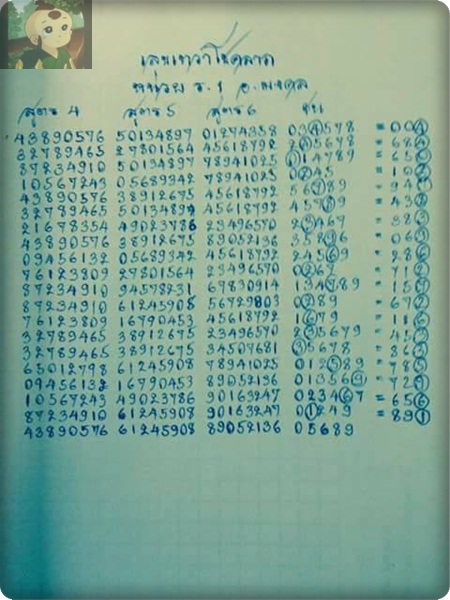 เลขเทวาโชคลาภ
หน่วย ร.1 อ.มงคล
สูตร 4 สูตร 5 สูตร 6 ชน
43890576 50134897 01274358 034578 = 004
32789465 27801564 45618792 245678 = 682
87234910 50134897 78941025 014789 = 650
10567243 05689342 78941025 0245
43890576 38912675 45618792 56789
32789465 50134897 45618792 45789
21678354 49023786 23496570 23467
43890576 38912675 89052136 35896
09456132 05689342 45618792 24569
76123809 27801564 23496570 0267
87234910 94578231 67830914 134789
87234910 61245908 56729803 0289 = 672
76123809 16790453 45618792 1679
32789465 38912675 23496570 235679
32789465 38912675 34507681
65012798 61245908 78941025 012589
09456132 16790453 89052136
10567243 49023786 90163247 023467 = 656
87234910 61245908 90163247 01249 = 891
43890576 61245908 89052136 05689